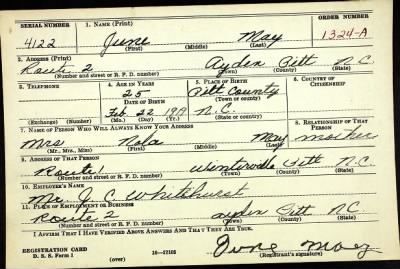 SERIAL NUMBER 1. NAME (Print) ORDER NUMBER
4122 June May 1324-A
(First) (Middle) (Last)
2. ADDRESS (Print)
Route 2 Ayden Pitt N.C.
(Number and street or R. F. D. number) (Town) (County) (State)
3. TELEPHONE 4. AGE IN YEARS 5. PLACE OF BIRTH 6. COUNTRY OF CITIZENSHIP
25 Pitt County
DATE OF BIRTH (Town or county)
Feb. 22 N.C.
(Exchange) (Number) (Mo.) (Day) (Yr.) (State or country)
7. NAME OF PERSON WHO WILL ALWAYS KNOW YOUR ADDRESS 8. RELATIONSHIP OF THAT PERSON
Mrs Nola May mother
(Mr., Mrs., Miss) (First) (Middle) (Last)
9. ADDRESS OF THAT PERSON
Route 1 Winterville Pitt N.C.
(Number and street or R. F. D. number) (Town) (County) (State)
10. EMPLOYER'S NAME
Mr. J. C. Whitehurst
11. PLACE OF EMPLOYMENT OR BUSINESS
Route 2 Ayden Pitt N.C.
(Number and street or R. F. D. number) (Town) (County) (State)
I AFFIRM THAT I HAVE VERIFIED ABOVE ANSWERS AND THAT THEY ARE TRUE.
REGISTRATION CARD June May
D. S. S. Form 1 (over) (Registrant's signature)